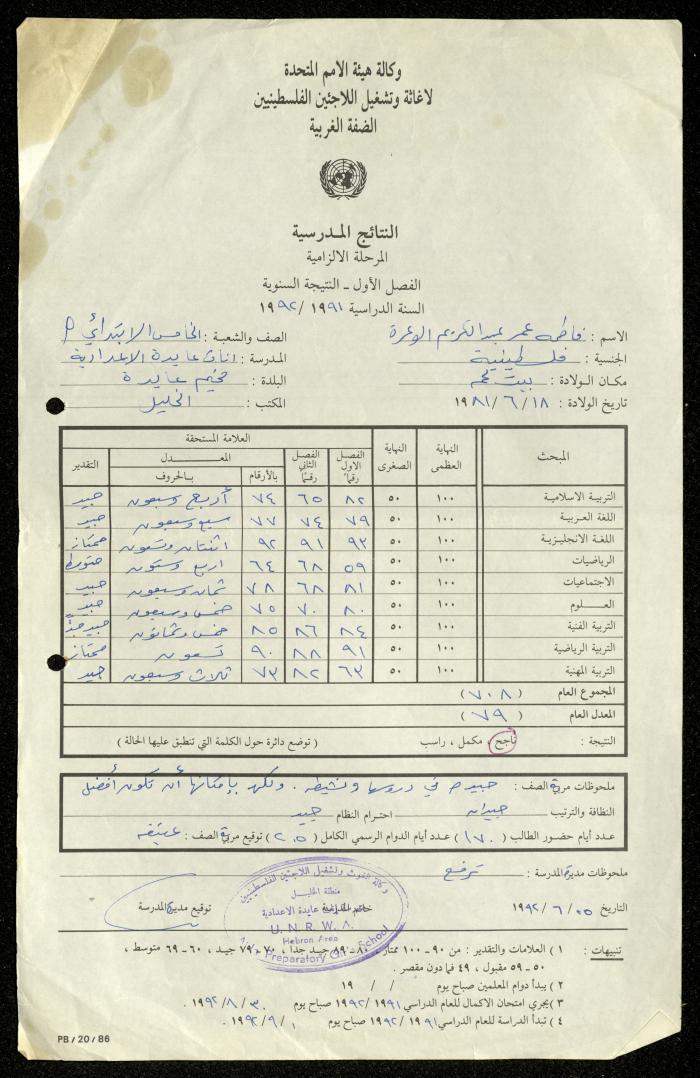 وكالة هيئة الامم المتحدة
لاغاثة وتشغيل اللاجئين الفلسطينيين
الضفة الغربية
النتائج المدرسية
المرحلة الالزامية
الفصل الأول - النتيجة السنوية
السنة الدراسية ١٩٩١ / ١٩٩٢
الاسم : فاطمه عمر عبد الكريم الوعرة الصف والشعبة : الخامس الابتدائي م
الجنسية : فلسطينية المدرسة : اناث عايدة الاعدادية
مكان الولادة : بيت لحم البلدة : مخيم عايدة
تاريخ الولادة : ١٨ / ٦ / ١٩٨١ المكتب : الخليل
المبحث النهاية العظمى النهاية الصغرى العلامة المستحقة
الفصل الاول رقماً الفصل الثاني رقماً المعدل التقدير
بالأرقام بالحروف
التربية الاسلامية ١٠٠ ٥٠ ٨٢ ٦٥ ٧٤ أربع وسبعون جيد
اللغة العربية ١٠٠ ٥٠ ٧٩ ٧٤ ٧٧ سبع وسبعون جيد
اللغة الانجليزية ١٠٠ ٥٠ ٩٣ ٩١ ٩٢ اثنتان وتسعون ممتاز
الرياضيات ١٠٠ ٥٠ ٥٩ ٦٨ ٦٤ اربع وستون متوسط
الاجتماعيات ١٠٠ ٥٠ ٨١ ٦٨ ٧٨ ثمان وسبعون جيد
العلوم ١٠٠ ٥٠ ٨٠ ٧٠ ٧٥ خمس وسبعون جيد
التربية الفنية ١٠٠ ٥٠ ٨٤ ٨٦ ٨٥ خمس وثمانون جيد جداً
التربية الرياضية ١٠٠ ٥٠ ٩١ ٨٨ ٩٠ تسعون ممتاز
التربية المهنية ١٠٠ ٥٠ ٦٣ ٨٢ ٧٣ ثلاث وسبعون جيد
المجموع العام ( ٧٠٨ )
المعدل العام ( ٧٩ )
النتيجة : ناجح ، مكمل ، راسب ( توضع دائرة حول الكلمة التي تنطبق عليها الحالة )
ملحوظات مربية الصف : جيدة في دروسها ونشيطه . ولكن بإمكانها أن تكون أفضل
النظافة والترتيب جيدان احترام النظام جيد
عدد أيام حضور الطالب ( ١٧٠ ) عدد أيام الدوام الرسمي الكامل ( ٢٠٥ ) توقيع مربية الصف :
ملحوظات مديرة المدرسة : ترفع
التاريخ ٠٥ / ٦ / ١٩٩٢ خاتم المدرسة توقيع مديرة المدرسة
وكالة الغوث وتشغيل اللاجئين الفلسطينيين
منطقة الخليل
عايدة الاعدادية
U. N. R. W. A.
Hebron Area
Preparatory Girls School
تنبيهات : ١ ) العلامات والتقدير : من ٩٠ - ١٠٠ ممتاز ، ٨٠ - ٨٩ جيد جداً ، ٧٠ - ٧٩ جيد ، ٦٠ - ٦٩ متوسط ،
٥٠ - ٥٩ مقبول ، ٤٩ فما دون مقصر .
٢ ) يبدأ دوام المعلمين صباح يوم / / ١٩
٣ ) يجري امتحان الاكمال للعام الدراسي ١٩٩١ / ١٩٩٢ صباح يوم ٣٠ / ٨ / ١٩٩٢ .
٤ ) تبدأ الدراسة للعام الدراسي ١٩٩١ / ١٩٩٢ صباح يوم ١ / ٩ / ١٩٩٢ .
PB / 20 / 86